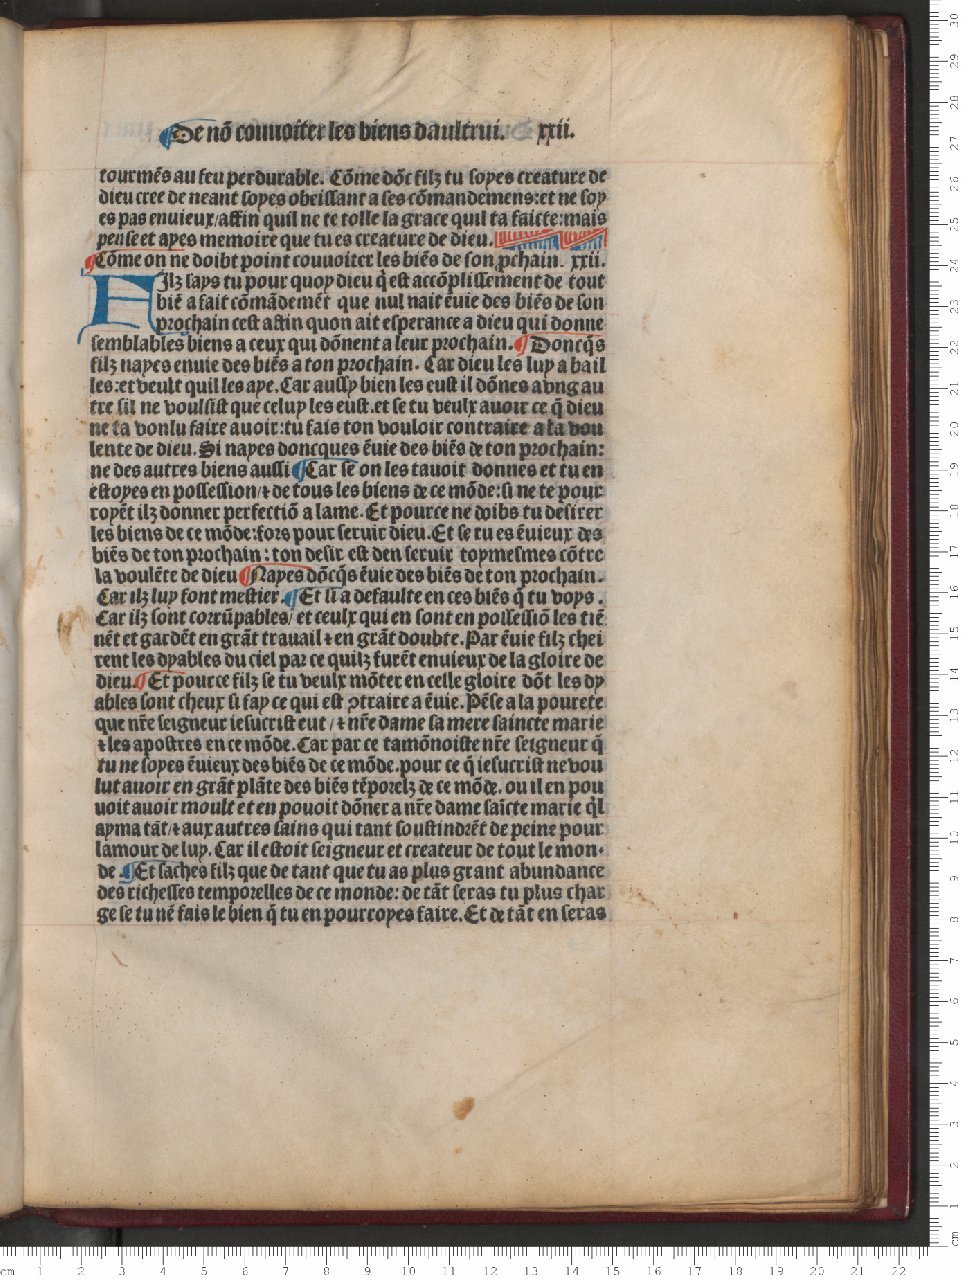 ¶De nõ couuoiter les biens daultrui. xxii.
tourmẽs au feu perdurable. Cõme dõc filz tu soyes creature de
dieu cree de neant soyes obeissant a ses cõmandemens: et ne soy
es pas enuieux/affin quil ne te tolle la grace quil ta faicte: mais
pense et ayes memoire que tu es creature de dieu.
¶Cõme on ne doibt point couuoiter les biẽs de son ꝓchain. xxii.
Filz says tu pour quoy dieu q̃ est accõplissement de tout
biẽ a fait cõmãdemẽt que nul nait ẽuie des biẽs de son
prochain cest affin quon ait esperance a dieu qui donne
semblables biens a ceux qui dõnent a leur prochain.¶Doncq̃s
filz nayes enuie des biẽs a ton prochain. Car dieu les luy a bail
les: et veult quil les aye. Car aussy bien les eust il dõnes a vng au
tre sil ne voulsist que celuy les eust. et se tu veulx auoir ce q̃ dieu
ne ta voulu faire auoir: tu fais ton vouloir contraire a la vou
lente de dieu. Si nayes doncques ẽuie des biẽs de ton prochain:
ne des autres biens aussi ¶Car se on les tauoit donnes et tu en
estoyes en possession/⁊ de tous les biens de ce mõde: si ne te pour
royẽt ilz donner perfectiõ a lame. Et pource ne doibs tu desirer
les biens de ce mõde: fors pour seruir dieu. Et se tu es ẽuieux des
biẽs de ton prochain: ton desir est den seruir toymesmes cõtre
la voulẽte de dieu ¶Nayes dõcq̃s ẽuie des biẽs de ton prochain.
Car ilz luy font mestier. ¶Et si a defaulte en ces biẽs q̃ tu voys.
Car ilz sont corrũpables/ et ceulx qui en sont en possessiõ les tiẽ
nẽt et gardẽt en grãt trauail ⁊ en grãt doubte. Par ẽuie filz chei
rent les dyables du ciel par ce quilz furẽt enuieux de la gloire de
dieu.¶Et pource filz se tu veulx mõter en celle gloire dõt les dy
ables sont cheux si fay ce qui est ↄtraire a ẽuie. Pẽse a la pourete
que nr̃e seigneur iesucrist eut/⁊ nr̃e dame sa mere saincte marie
⁊ les apostres en ce mõde. Car par ce tamõnoiste nr̃e seigneur q̃
tu ne soyes ẽuieux des biẽs de ce mõde. pour ce q̃ iesucrist ne vou
lut auoir en grãt plãte des biẽs tẽporelz de ce mõde. ou il en pou
uoit auoir moult et en pouoit dõner a nr̃e dame saĩcte marie q̃l
ayma tãt/⁊ aux autres sains qui tant soustindrẽt de peine pour
lamour de luy. Car il estoit seigneur et createur de tout le mon-
de .¶Et saches filz que de tant que tu as plus grant abundance
des richesses temporelles de ce monde: de tãt seras tu plus char
ge se tu nẽ fais le bien q̃ tu en pourroyes faire. Et de tãt en seras